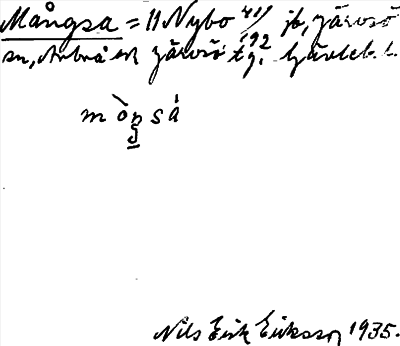 Mångsa = 11 Nybo 4¹⁹/192 jb, Järvsö
sn, Arbrå o Järvsö tg. Gävleb. l.
mòŋsá
Nils Erik Eriksson 1935.